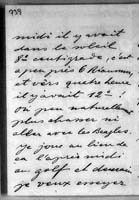 939
midi il y avait
dans le soleil
8° centigrade, c'est
à peu près 6 Réaumur,
et vers quatre heures
il y avait 12°!
on peut naturellement
plus chasser ni
aller avec les Beagles.
je joue au lieu de
ça l'après midi
au golf et demain
je veux essayer